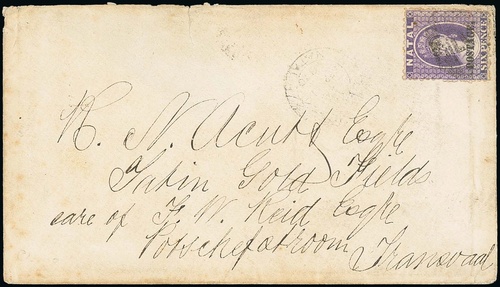 NATAL
POSTAGE.
SIX PENCE
R. N. Acutt Esqre
Tatin Gold Fields
care of F. W. Reid Esqre
Potschefstroom
Transvaal